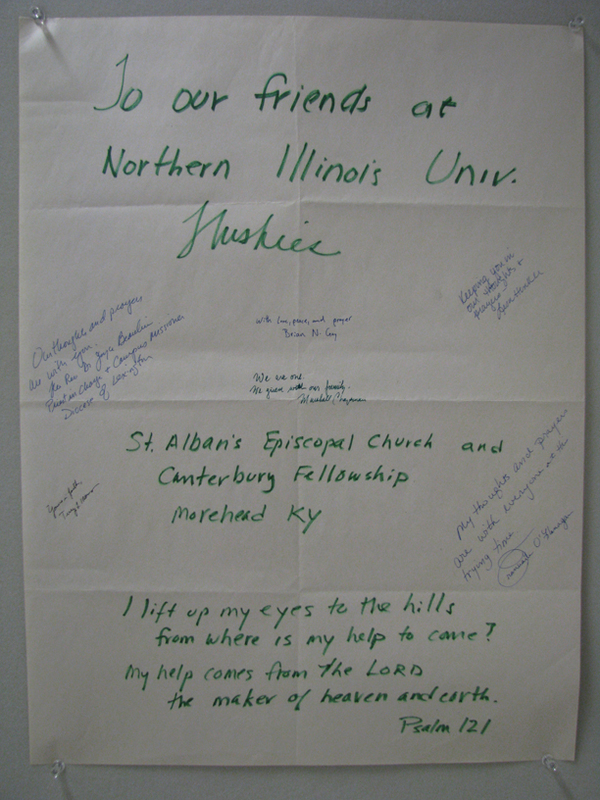 To our friends at
Northern Illinois Univ.
Huskies
Keeping you in
our thoughts +
prayers
Our thoughts and prayers
are with you.
The Rev
Priest in Charge + Campus Missioner
Diocese of Lexington
With love, peace, and prayer
Brian N.
We are one.
We grieve with our family.
Marshall Chapman
St. Alban's Episcopal Church and
Canterbury Fellowship
Morehead KY
My thoughts and prayers
are with everyone at this
trying time
I lift up my eyes to the hills
from where is my help to come?
My help comes from The LORD
the maker of heaven and earth.
Psalm 121